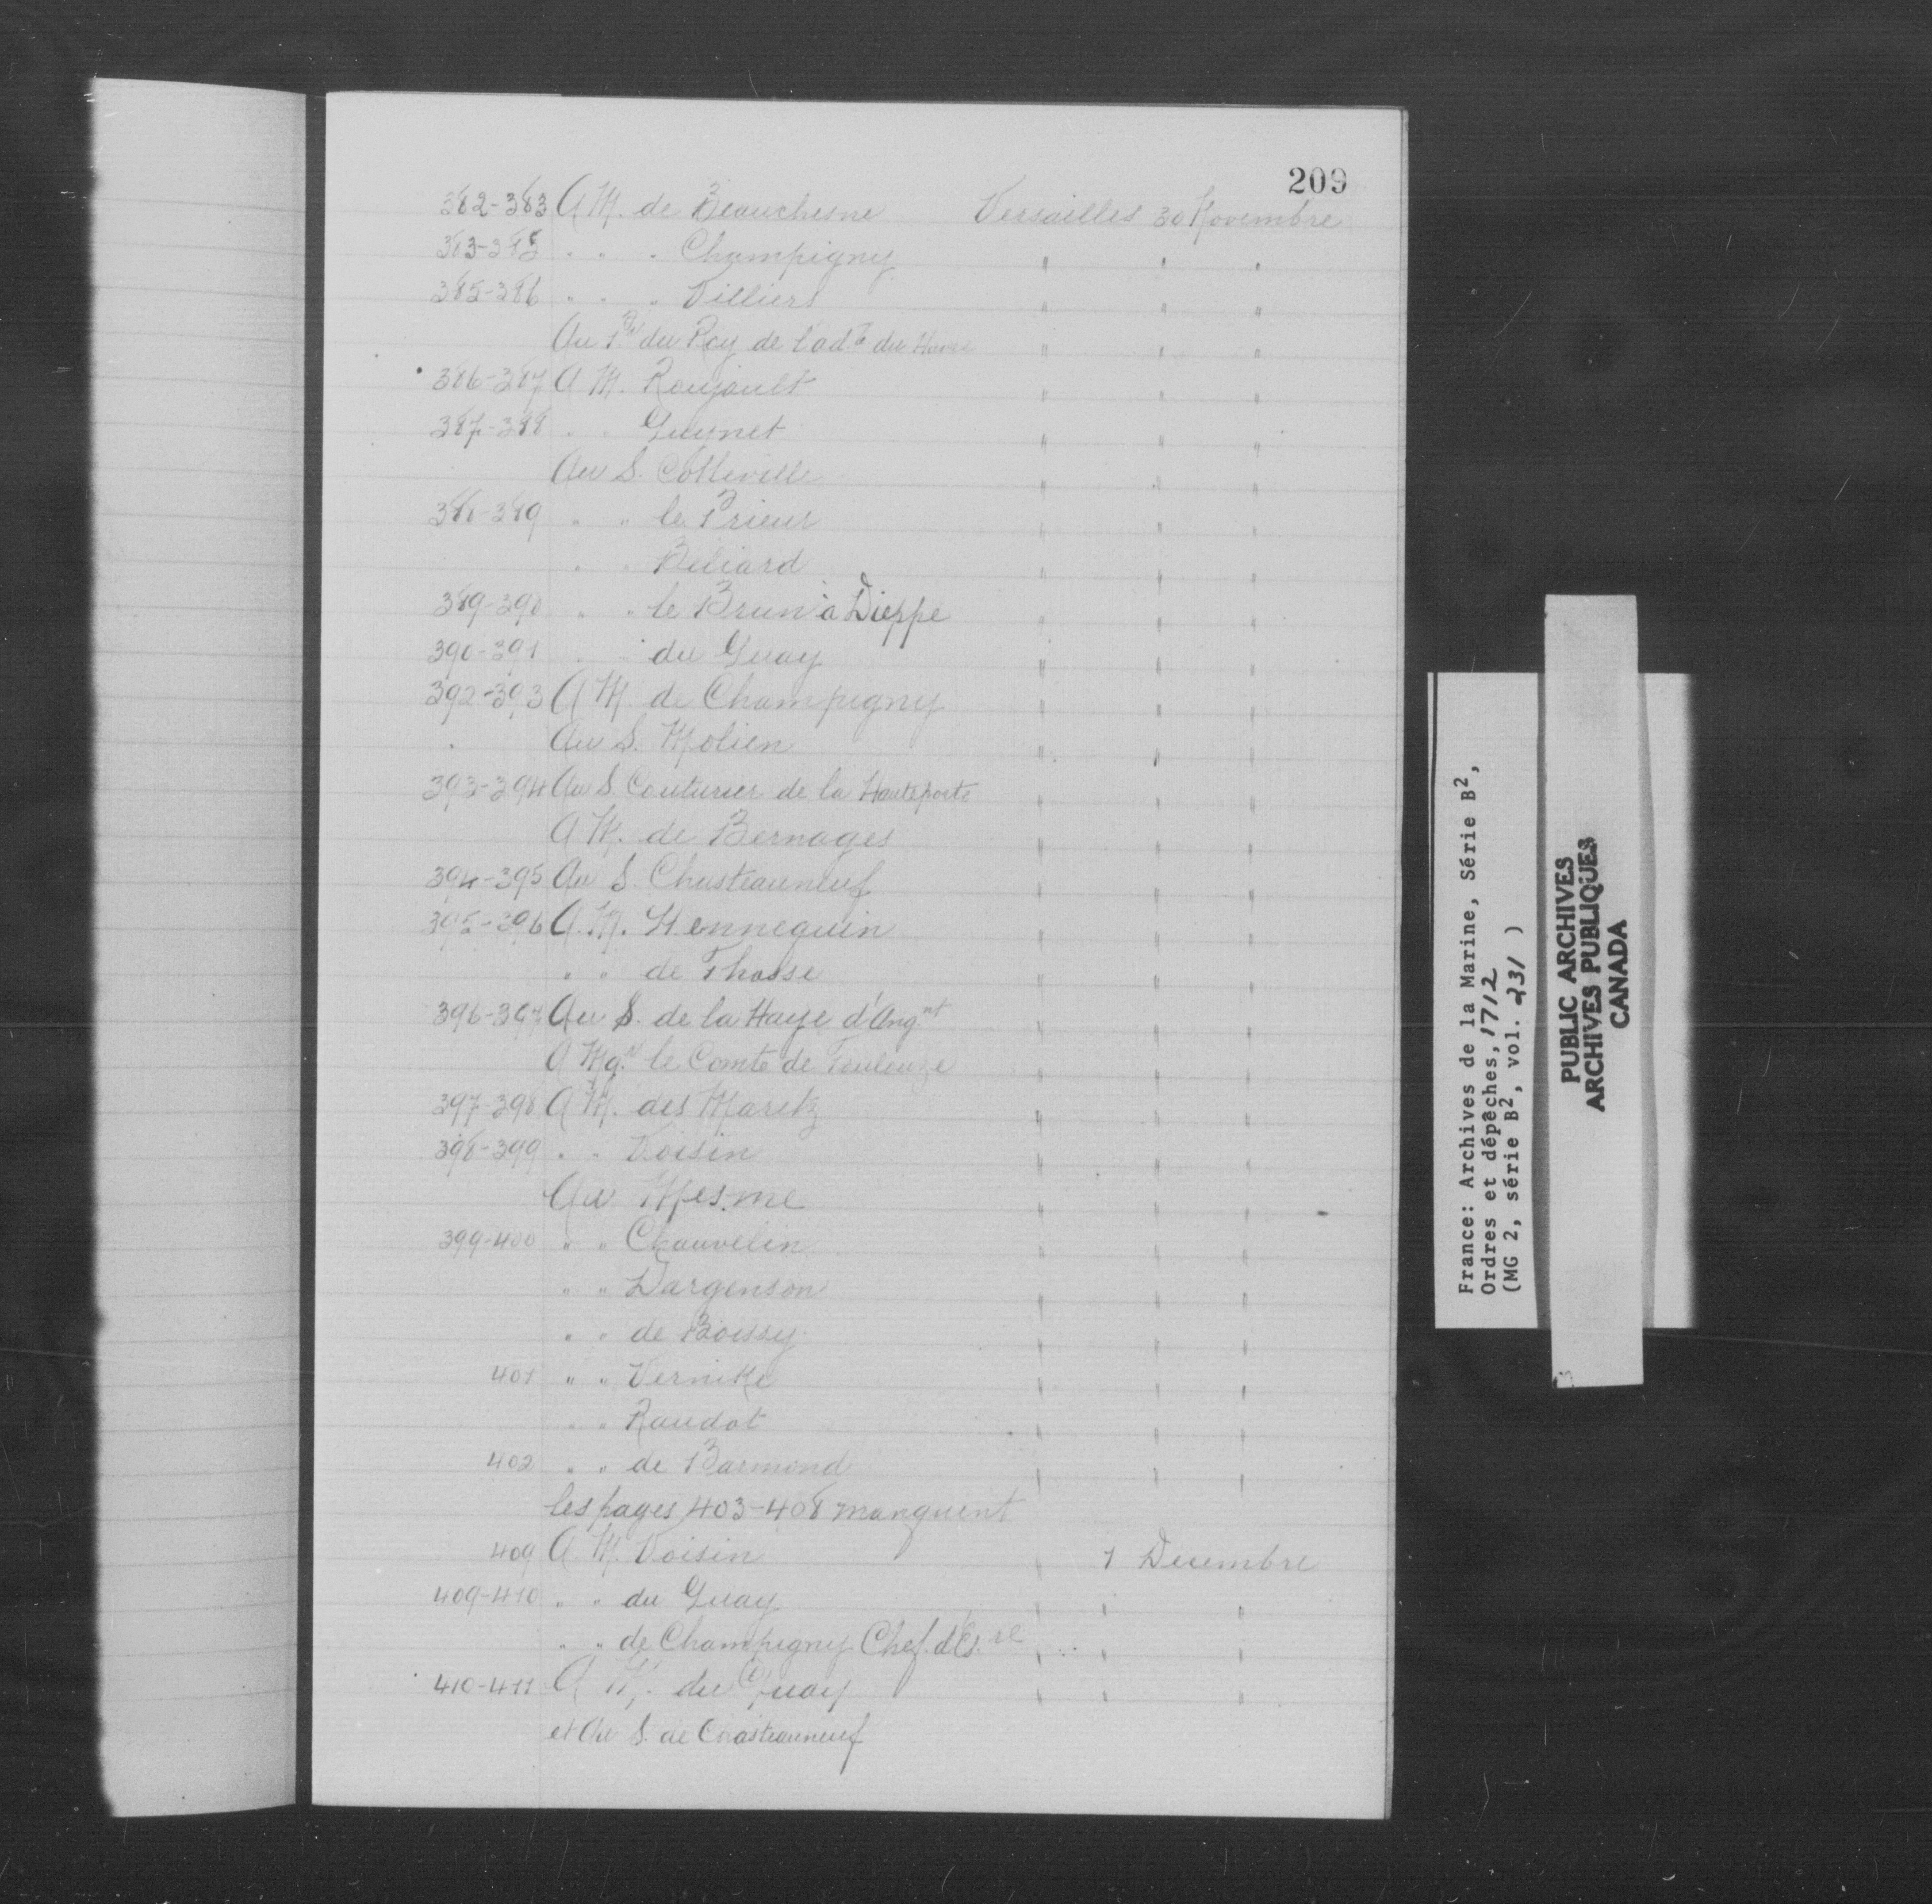 209
382-383 A M. de Beauchesne Versailles 30 Novembre
383-385 " " " Champigny " " "
385-386 " " " Villiers " " "
Au Pr du Roy de l'adté du Havre " " "
386-387 A M. Roujault " " "
387-388 " " Guynet " " "
Au S. Colleville " " "
388-389 " " le Prieur " " "
" " Beliard " " "
389-390 " " le Brun à Dieppe " " "
390-391 " " du Guay " " "
392-393 A M. de Champigny " " "
Au S. Molien " " "
393-394 Au S Couturier de la Hauteporte " " "
A M. de Bernages " " "
394-395 Au S. Chasteauneuf " " "
395-396 A. M. Hennequin " " "
" " de Thosse " " "
396-397 Au S. de la Haye d'Angnt " " "
A Mgr le Comte de Toulouze " " "
397-398 A M. des Maretz " " "
398-399 " " Voisin " " "
Au Mesme " " "
399-400 " " Chauvelin " " "
" " Dargenson " " "
" " de Boissy " " "
401 " " Vernike " " "
" " Raudot " " "
402 " " de Barmond " " "
les pages 403-408 manquent
409 A. M. Voisin " 1 Decembre
409-410 " " du Guay " " "
" " de Champigny Chef. d'Es.re " " "
410-411 A M. du Guay " " "
et Au S. de Chasteauneuf
France: Archives de la Marine, Série B2,
Ordres et dépêches, 1712
(MG 2, série B2, vol. 231 )
PUBLIC ARCHIVES
ARCHIVES PUBLIQUES
CANADA